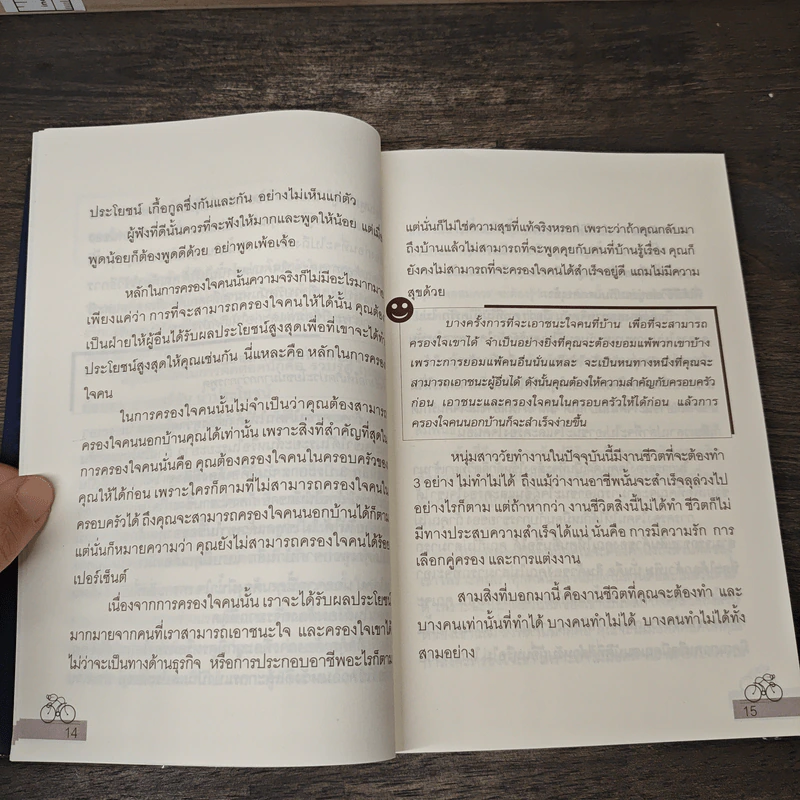 ประโยชน์ เกื้อกูลซึ่งกันและกัน อย่างไม่เห็นแก่ตัว
ผู้ฟังที่ดีนั้นควรที่จะฟังให้มากและพูดให้น้อย แต่เมื่อ
พูดน้อยก็ต้องพูดดีด้วย อย่าพูดเพ้อเจ้อ
หลักในการครองใจคนนั้นความจริงก็ไม่มีอะไรมากมาย
เพียงแค่ว่า การที่จะสามารถครองใจคนให้ได้นั้น คุณต้อง
เป็นฝ่ายให้ผู้อื่นได้รับผลประโยชน์สูงสุดเพื่อที่เขาจะได้ทำ
ประโยชน์สูงสุดให้คุณเช่นกัน นี่แหละคือ หลักในการครอง
ใจคน
ในการครองใจคนนั้นไม่จำเป็นว่าคุณต้องสามารถ
ครองใจคนนอกบ้านคุณได้เท่านั้น เพราะสิ่งที่สำคัญที่สุดใน
การครองใจคนนั่นคือ คุณต้องครองใจคนในครอบครัวของ
คุณให้ได้ก่อน เพราะใครก็ตามที่ไม่สามารถครองใจคนใน
ครอบครัวได้ ถึงคุณจะสามารถครองใจคนนอกบ้านได้ก็ตาม
แต่นั่นก็หมายความว่า คุณยังไม่สามารถครองใจคนได้ร้อย
เปอร์เซ็นต์
เนื่องจากการครองใจคนนั้น เราจะได้รับผลประโยชน์
มากมายจากคนที่เราสามารถเอาชนะใจ และครองใจเขาได้
ไม่ว่าจะเป็นทางด้านธุรกิจ หรือการประกอบอาชีพอะไรก็ตาม
14
แต่นั่นก็ไม่ใช่ความสุขที่แท้จริงหรอก เพราะว่าถ้าคุณกลับมา
ถึงบ้านแล้วไม่สามารถที่จะพูดคุยกับคนที่บ้านรู้เรื่อง คุณก็
ยังคงไม่สามารถที่จะครองใจคนได้สำเร็จอยู่ดี แถมไม่มีความ
สุขด้วย
บางครั้งการที่จะเอาชนะใจคนที่บ้าน เพื่อที่จะสามารถ
ครองใจเขาได้ จำเป็นอย่างยิ่งที่คุณจะต้องยอมแพ้พวกเขาบ้าง
เพราะการยอมแพ้คนอื่นนั่นแหละ จะเป็นหนทางหนึ่งที่คุณจะ
สามารถเอาชนะผู้อื่นได้ ดังนั้นคุณต้องให้ความสำคัญกับครอบครัว
ก่อน เอาชนะและครองใจคนในครอบครัวให้ได้ก่อน แล้วการ
ครองใจคนนอกบ้านก็จะสำเร็จง่ายขึ้น
หนุ่มสาววัยทำงานในปัจจุบันนี้มีงานชีวิตที่จะต้องทำ
3 อย่าง ไม่ทำไม่ได้ ถึงแม้ว่างานอาชีพนั้นจะสำเร็จลุล่วงไป
อย่างไรก็ตาม แต่ถ้าหากว่า งานชีวิตสิ่งนี้ไม่ได้ทำ ชีวิตก็ไม่
มีทางประสบความสำเร็จได้แน่ นั่นคือ การมีความรัก การ
เลือกคู่ครอง และการแต่งงาน
สามสิ่งที่บอกมานี้ คืองานชีวิตที่คุณจะต้องทำ และ
บางคนเท่านั้นที่ทำได้ บางคนทำไม่ได้ บางคนทำไม่ได้ทั้ง
สามอย่าง
15